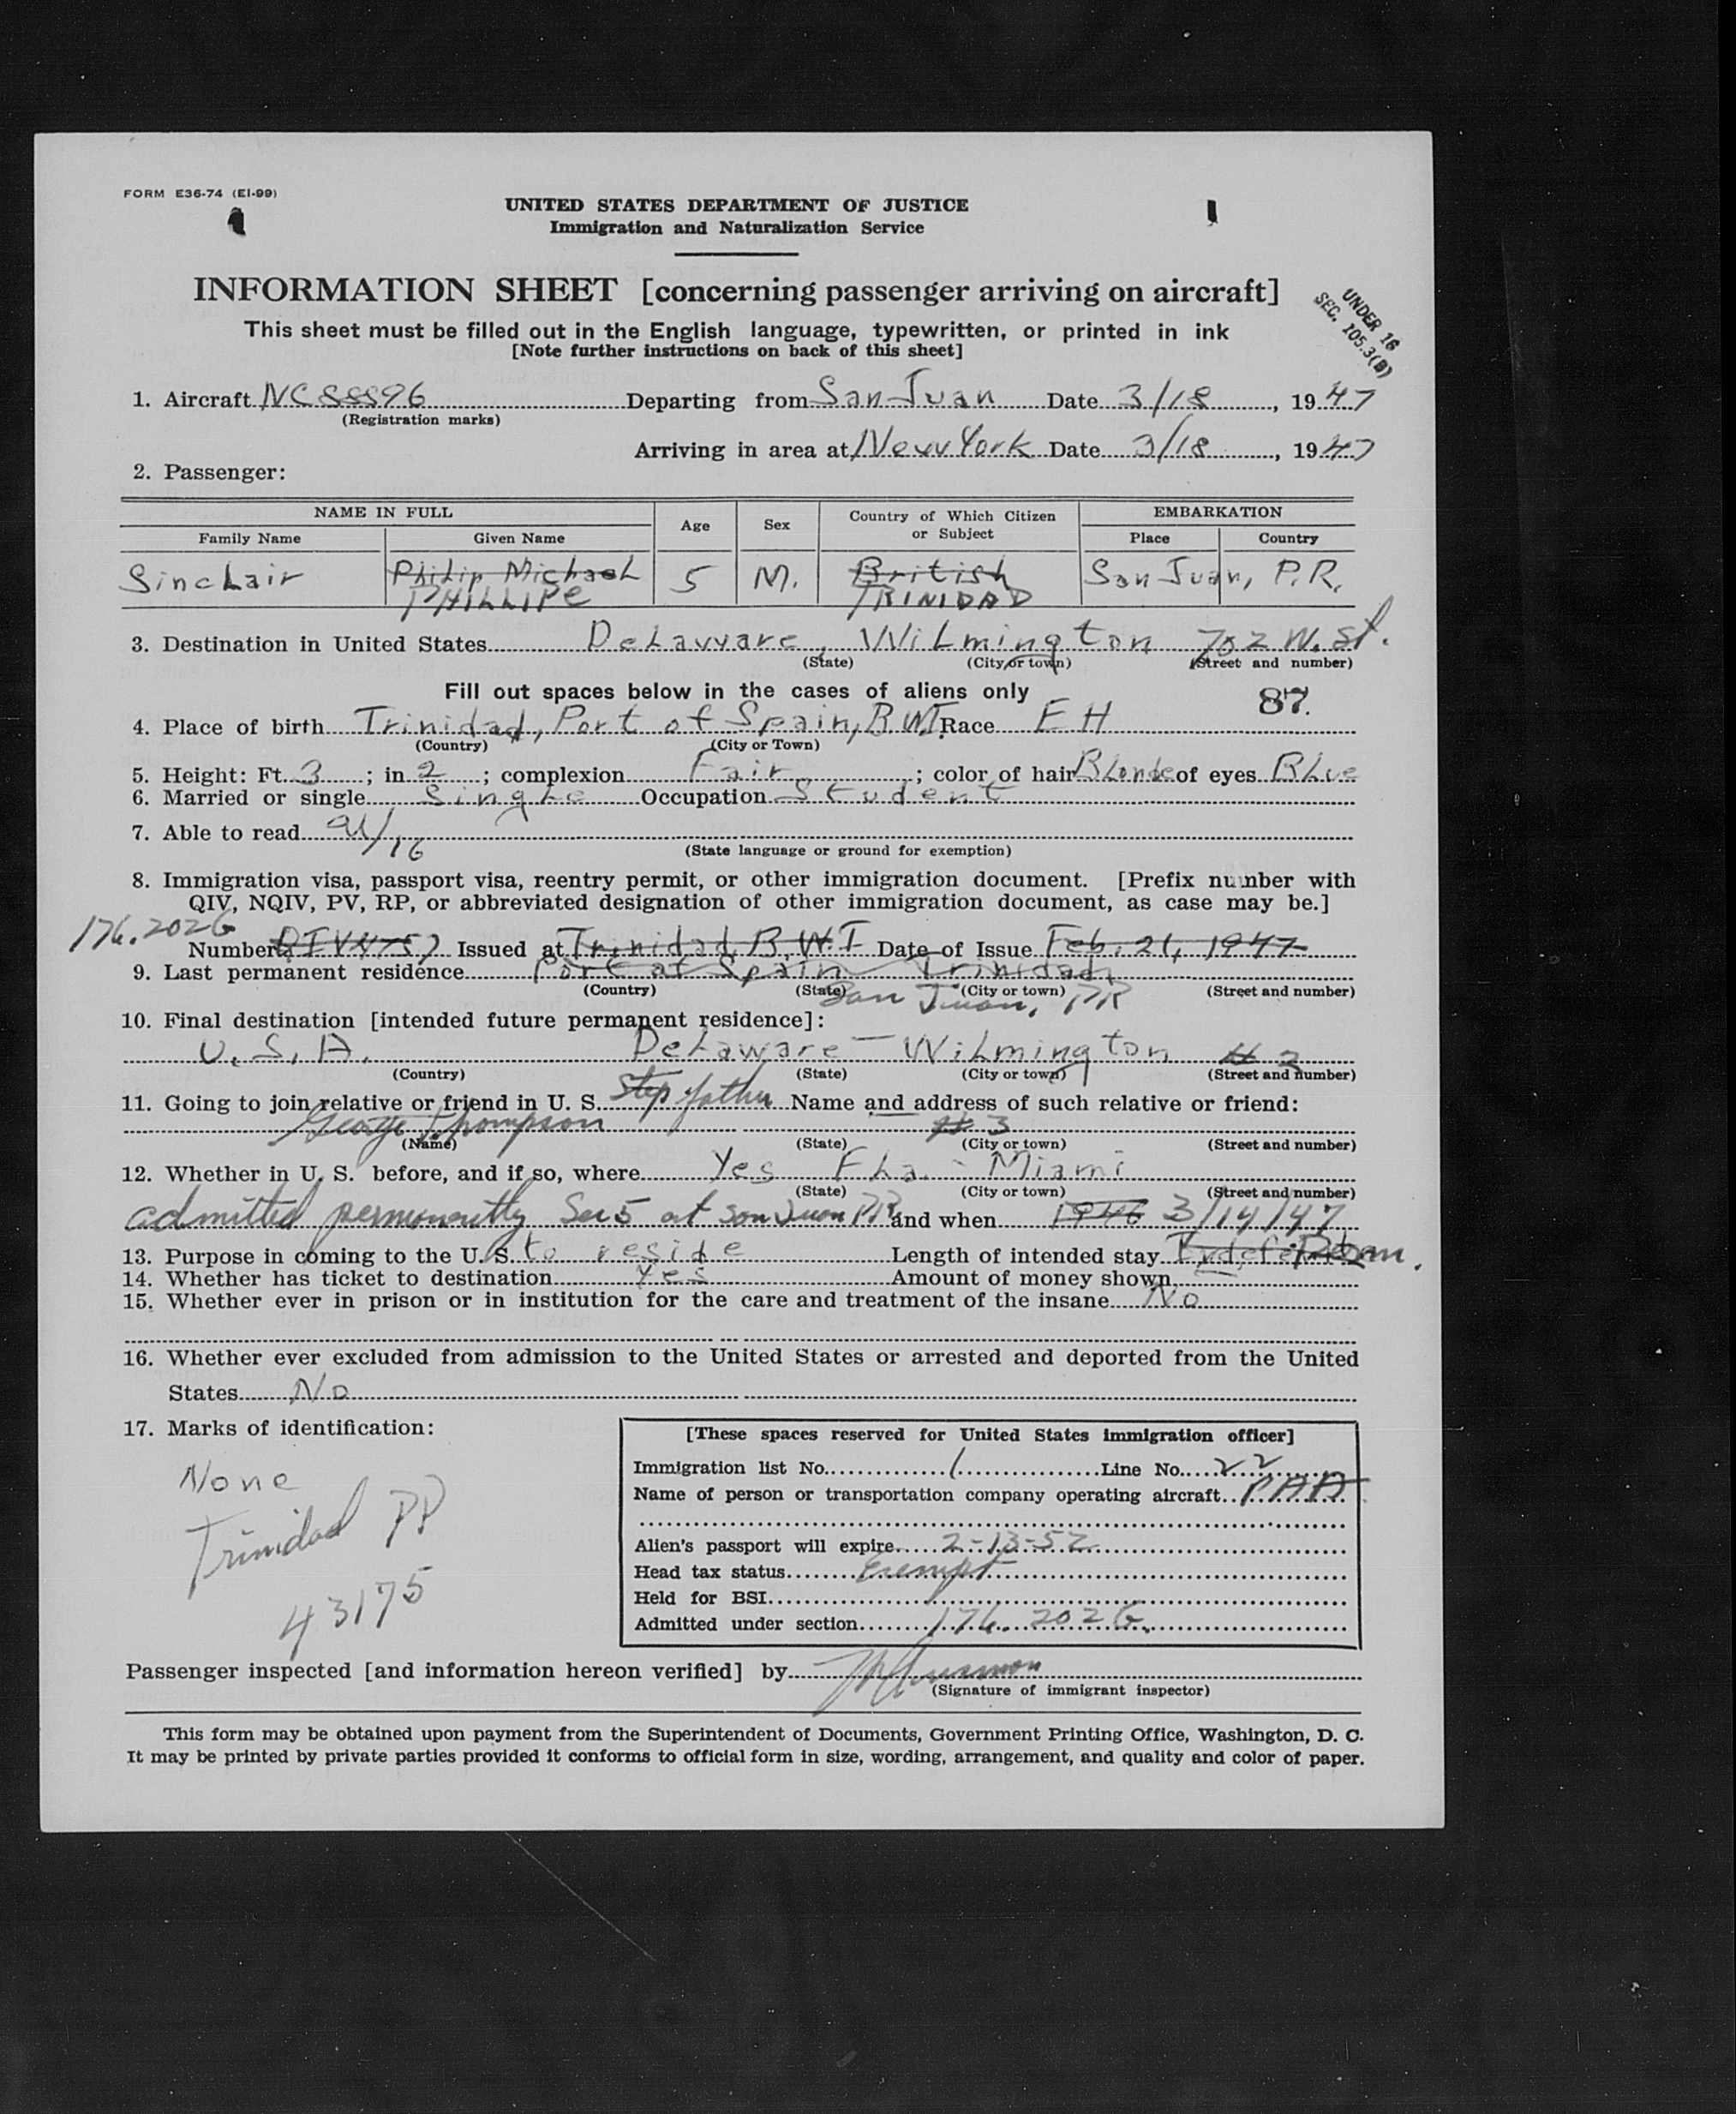 FORM E36-74 (EI-99)
UNITED STATES DEPARTMENT OF JUSTICE
Immigration and Naturalization Service
INFORMATION SHEET [concerning passenger arriving on aircraft]
UNDER 16
SEC. 105.3(B)
This sheet must be filled out in the English language, typewritten, or printed in ink
[Note further instructions on back of this sheet]
1. Aircraft NC88896 Departing from San Juan Date 3/18, 1947
(Registration marks)
Arriving in area at New York Date 3/18, 1947
2. Passenger:
NAME IN FULL Age Sex Country of Which Citizen or Subject EMBARKATION
Family Name Given Name Place Country
Sinclair Philip Michael 5 M. British San Juan, P.R.
PHILLIPE TRINIDAD
3. Destination in United States Delaware, Wilmington 702 W. St.
(State) (City or town) (Street and number)
Fill out spaces below in the cases of aliens only 87.
4. Place of birth Trinidad, Port of Spain, B.W.I. Race EH
(Country) (City or Town)
5. Height: Ft. 3; in 2; complexion Fair; color of hair Blonde of eyes Blue
6. Married or single Single Occupation Student
7. Able to read U/16
(State language or ground for exemption)
8. Immigration visa, passport visa, reentry permit, or other immigration document. [Prefix number with
QIV, NQIV, PV, RP, or abbreviated designation of other immigration document, as case may be.]
176.202G
Number QIV Issued at Trinidad, B.W.I Date of Issue Feb. 21, 1947
9. Last permanent residence Port at Spain Trinidad
(Country) (State) (City or town) (Street and number)
San Juan, PR
10. Final destination [intended future permanent residence]:
U.S.A. Delaware - Wilmington # 3
(Country) (State) (City or town) (Street and number)
11. Going to join relative or friend in U. S. Step father Name and address of such relative or friend:
George Thompson # 3
(Name) (State) (City or town) (Street and number)
12. Whether in U. S. before, and if so, where Yes Fla. - Miami
(State) (City or town) (Street and number)
admitted permanently Sec 5 at San Juan PR and when 1946 3/14/47
13. Purpose in coming to the U. S. to reside Length of intended stay Perm.
14. Whether has ticket to destination Yes Amount of money shown
15. Whether ever in prison or in institution for the care and treatment of the insane No
16. Whether ever excluded from admission to the United States or arrested and deported from the United
States No
17. Marks of identification:
None
Trinidad PP
43175
[These spaces reserved for United States immigration officer]
Immigration list No. 1 Line No. 22
Name of person or transportation company operating aircraft PAA
Alien's passport will expire 2-13-52
Head tax status Exempt
Held for BSI
Admitted under section 176.202G.
Passenger inspected [and information hereon verified] by
(Signature of immigrant inspector)
This form may be obtained upon payment from the Superintendent of Documents, Government Printing Office, Washington, D. C.
It may be printed by private parties provided it conforms to official form in size, wording, arrangement, and quality and color of paper.